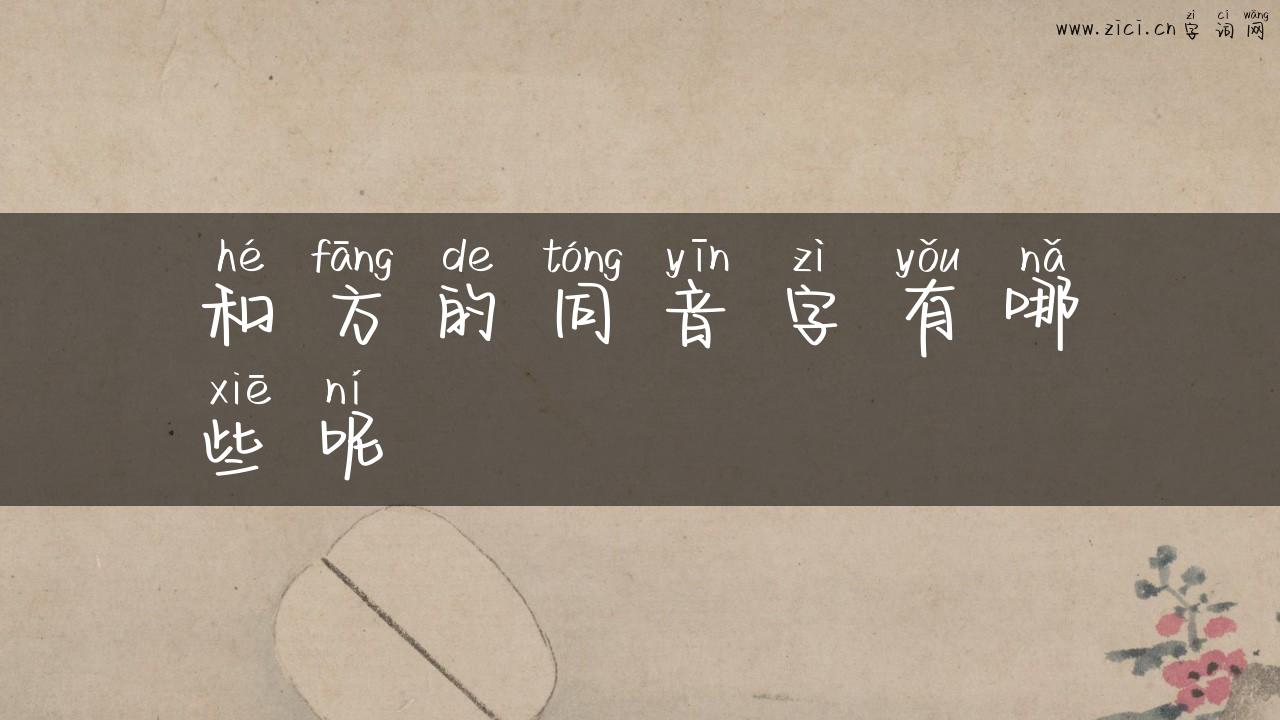 zì cí wǎng
www.zici.cn字词网
hé fāng de tóng yīn zì yǒu nǎ
和方的同音字有哪
xiē ní
些呢